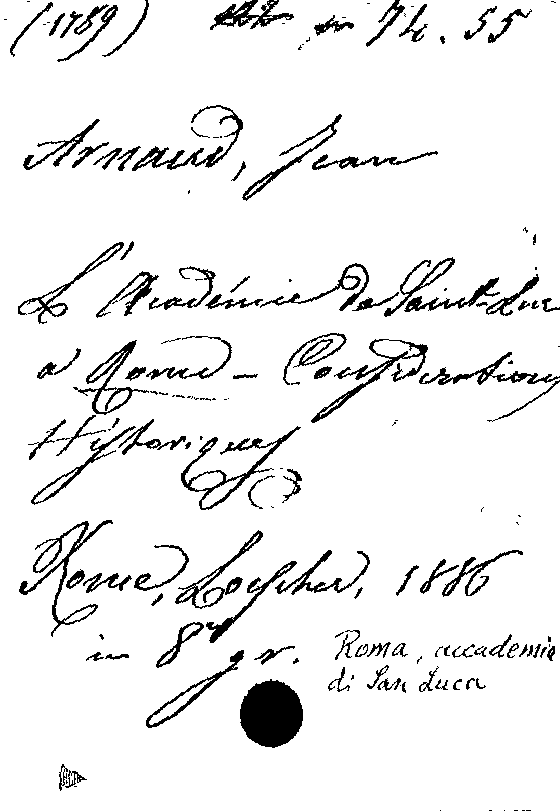 (1789) 74.55
Arnaud, Jean
L'Académie de Saint-Luc
a Rome - Considerations
Historiques
Rome, Loescher, 1886
in 8º gr.
Roma, accademia
di San Luca